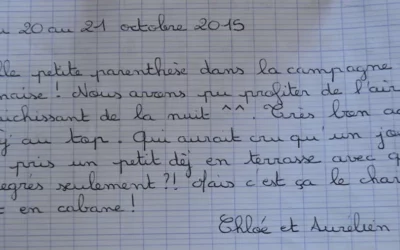 u 20 au 21 octobre 2015
lle petite parenthèse dans la campagne
naise ! Nous avons pu profiter de l'air
uichissant de la nuit ^^. Très bon ac
éj au top. Qui aurait cru qu'un jou
pris un petit déj en terrasse avec q
egrés seulement ?! Mais c'est ça le char
t en cabane !
Chloé et Aurélien